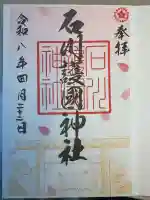 奉拝
石川護國神社
石川
神社
令和八年四月二十二日